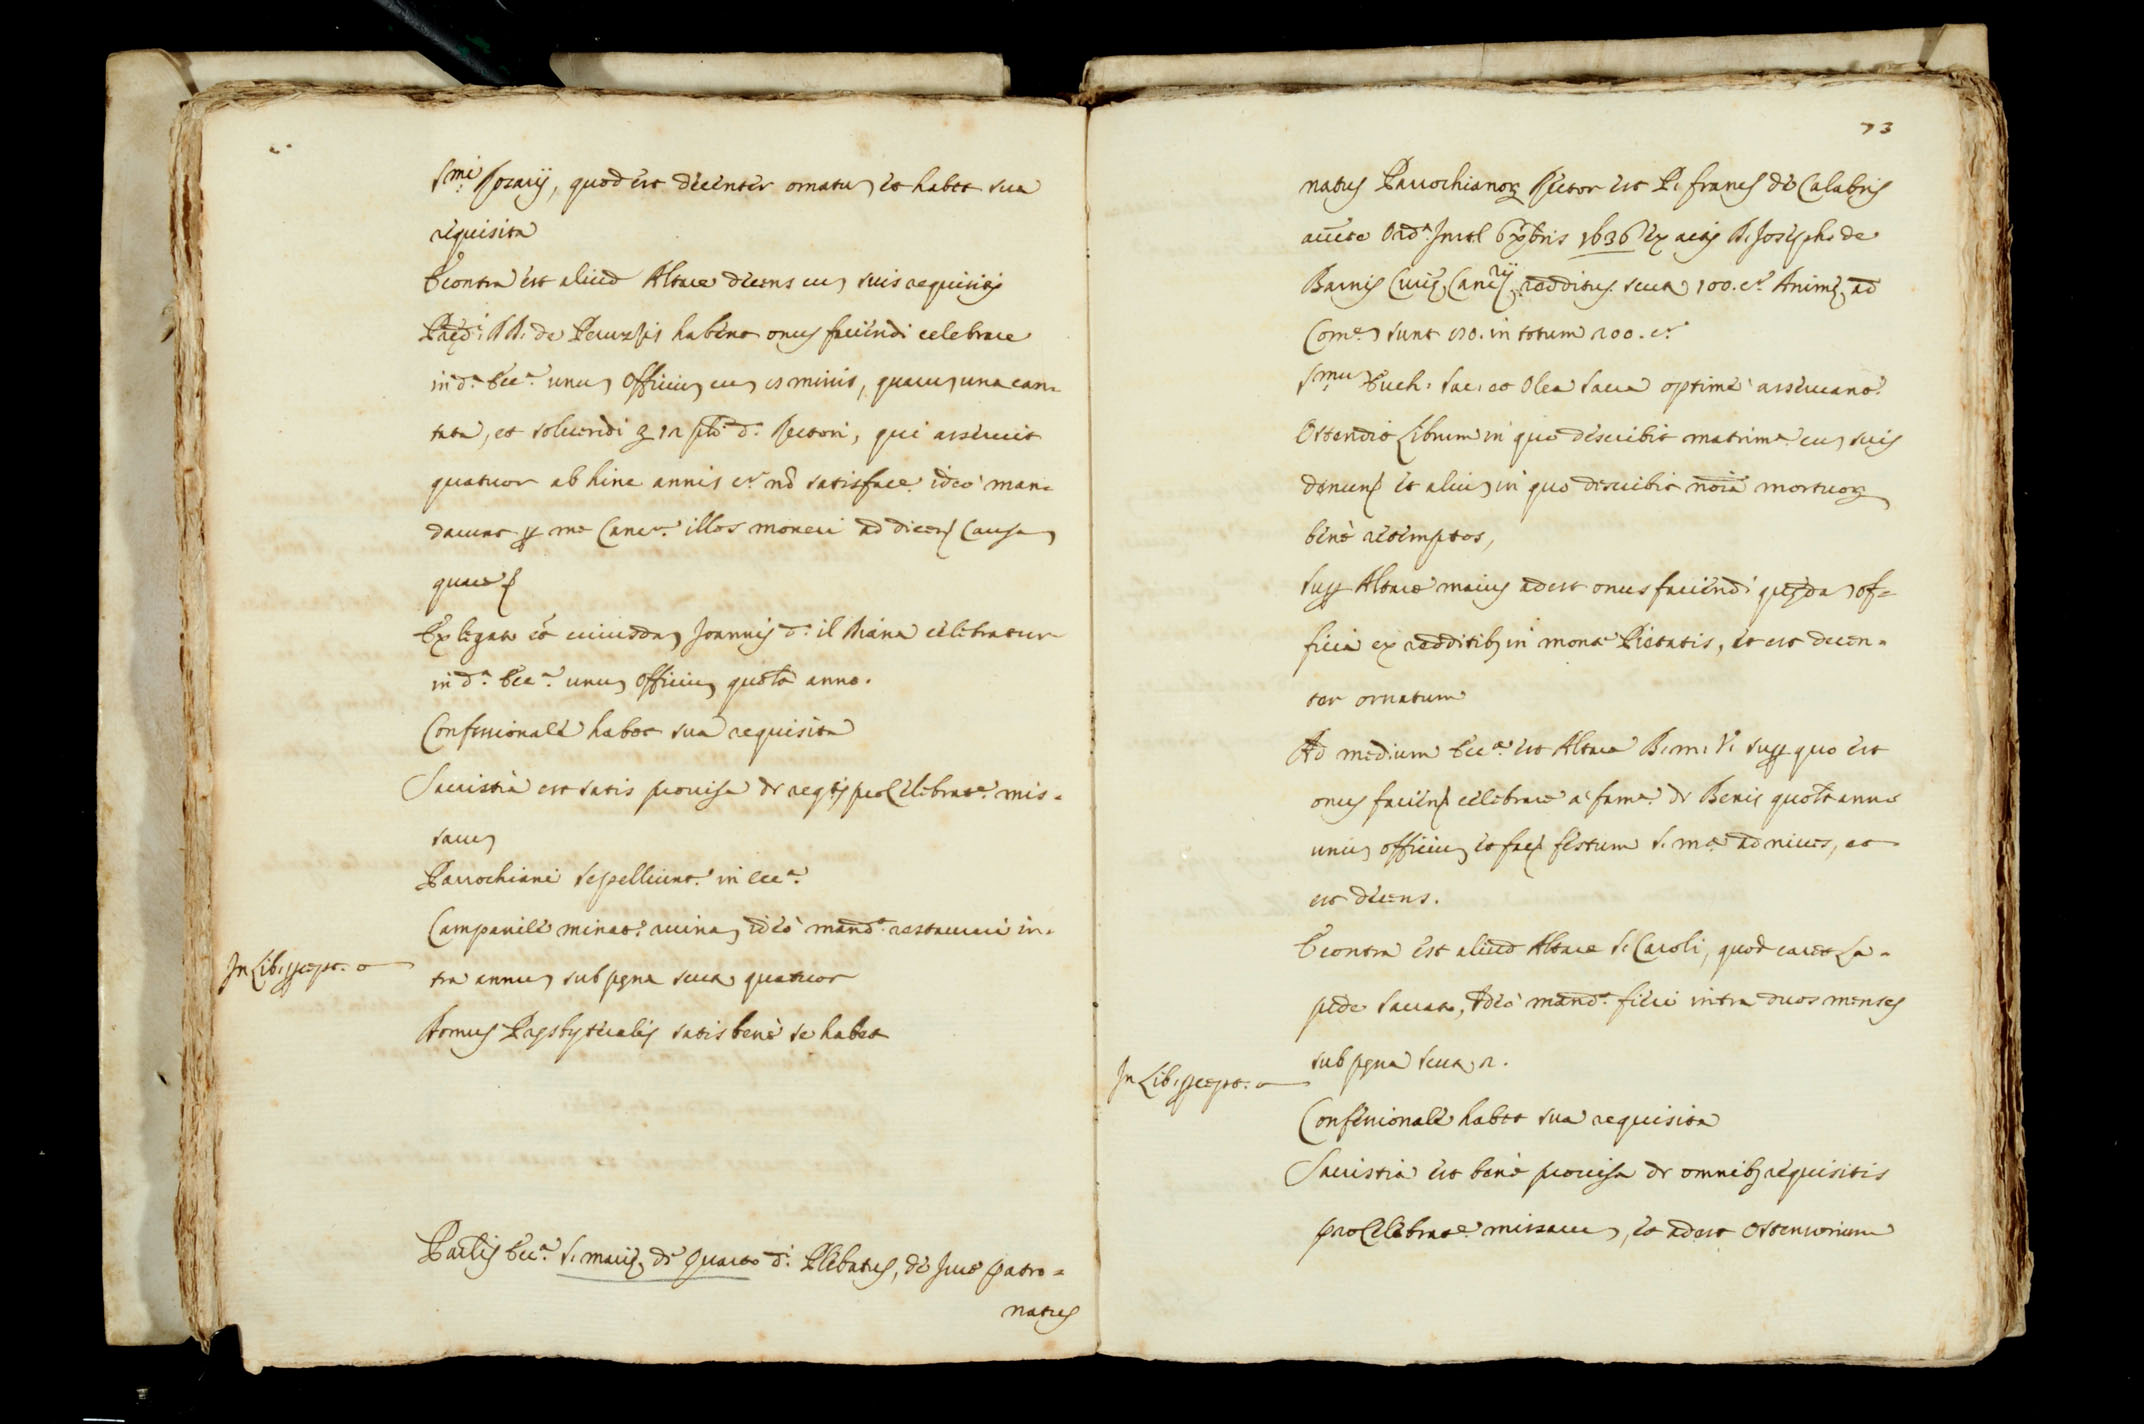 Smi Rosarij, quod est decenter ornatu, et habet sua
requisita
E contra est aliud Altare decens cu, suis requisitis
Præd.i DD. de Peruzzis habent onus faciendi celebrare
in d.a Ecc.a unu, Officiu, cu, 13 missis, quaru, una can-
tata, et solvendi 12 d.o Rectori, qui asserit
quatuor ab hinc annis nõ satisfac.e ideò man-
davit p me Canc.m illos moneri ad dicend Causa,
quare
Ex legato cuiusda, Joannis d.o il Diana celebratur
in d.a Ecc.a unu, Officiu, quolt anno.
Confessionale habet sua requisita
Sacristia est satis provisa de reqtis pro Celebrat.e mis-
saru,
Parrochiani sepelliunt.r in ecc.a
Campanile minat.r ruina, ideò mand.t restaurari in-
In Lib. præcept.
tra annu, sub pena scuta, quatuor
Domus Presbyteralis satis benè se habet
Parlis Ecc.a S. mariæ de Quarto d.i Plebatus, de Jure patro-
natus
73
natus Parrochianor Rector est D. Franc.s de Calabris
aucte Ord.a 1636 ex actis D. Josephi de
Barnis redditus scuta, 100. Animæ, ad
Com.e, sunt in totum 200.
Smu, Euch. Sac. et Olea Sacra optimè asservant.r
Ostendit Librum in quo describit matrim.a cu, suis
denunt et aliu, in quo describit noia mortuor,
benè retemptos,
Supp Altare maius adest onus faciendi quæda, of-
ficia ex redditib, in monte Pietatis, et est decen-
ter ornatum
Ad medium Ecc.a est Altare B. m. V. supp quo est
onus faciend celebrare a fam.a de Benis quolt anno
unu, officiu, et fac festum S. m.a ad nives, et
est decens.
E contra est aliud Altare S. Caroli, quod caret La-
pide Sacrato, Ideò mand.t fieri intra duos menses
sub pena scuta, 2.
In Lib. præcept.
Confessionale habet sua requisita
Sacristia est benè provisa de omnib, requisitis
pro Celebrat.e missaru,, et adest Ostensorium